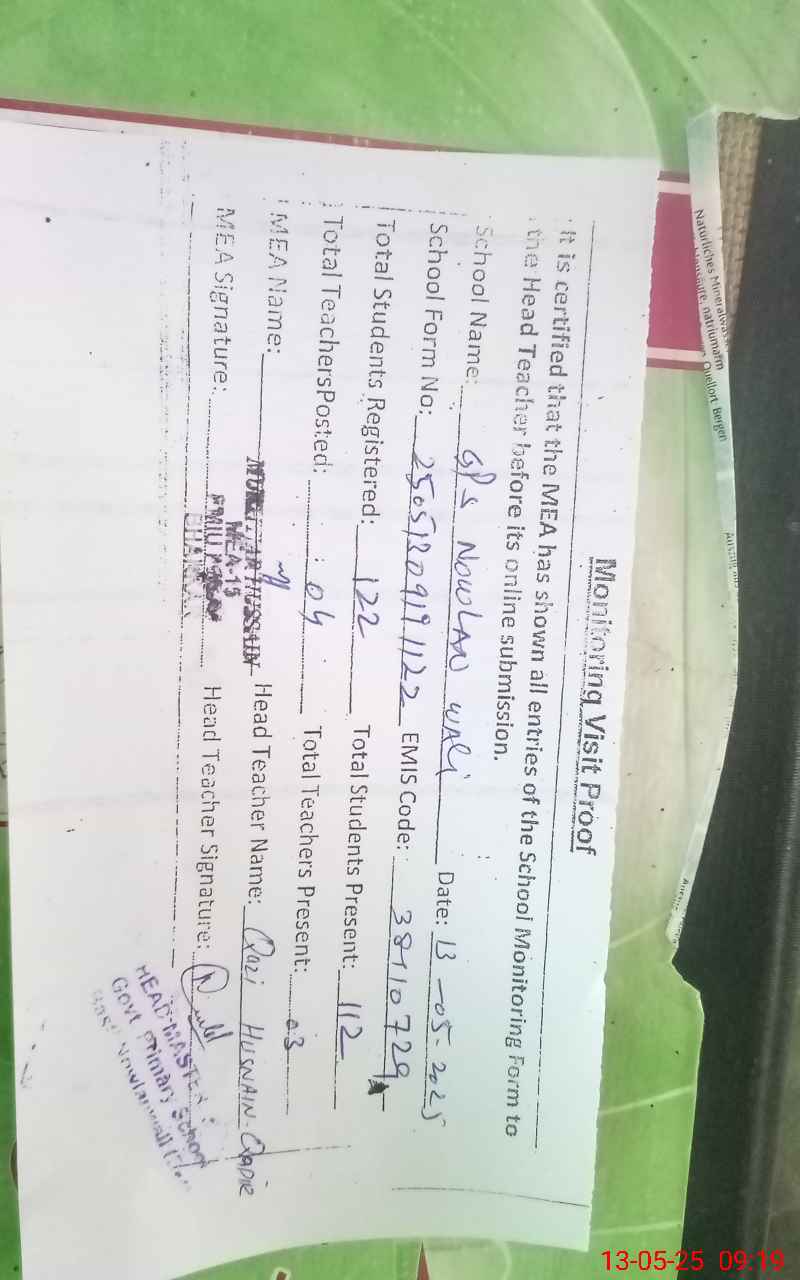 Monitoring Visit Proof
It is certified that the MEA has shown all entries of the School Monitoring Form to
the Head Teacher before its online submission.
School Name: GPS NOWLAN WALI Date: 13-05-2025
School Form No: 25051309191122 EMIS Code: 38110729
Total Students Registered: 122 Total Students Present: 112
Total TeachersPosted: 04 Total Teachers Present: 03
MEA Name: HUSSAIN Head Teacher Name: Qazi HUSNAIN-QADIR
MEA-15
MEA Signature: PMIU Head Teacher Signature:
HEAD MASTER
Govt Primary School
Natürliches Mineralwasser
natriumarm
Quellort: Bergen
13-05-25 09:19